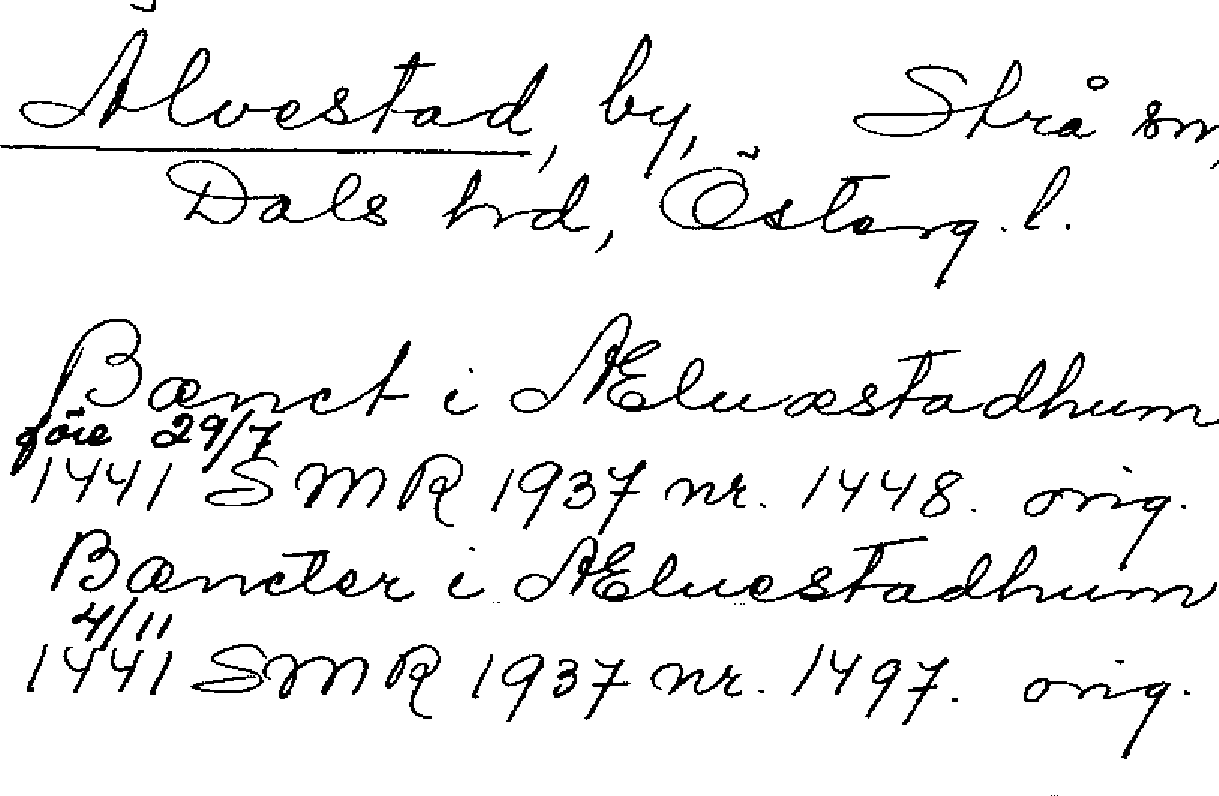 Alvestad, by, Strå sn,
Dals hrd, Österg. l.
Bænct i Æluæstadhum
före 29/7
1441 SMR 1937 nr. 1448. orig.
Bæncter i Æluestadhum
4/11
1441 SMR 1937 nr. 1497. orig.